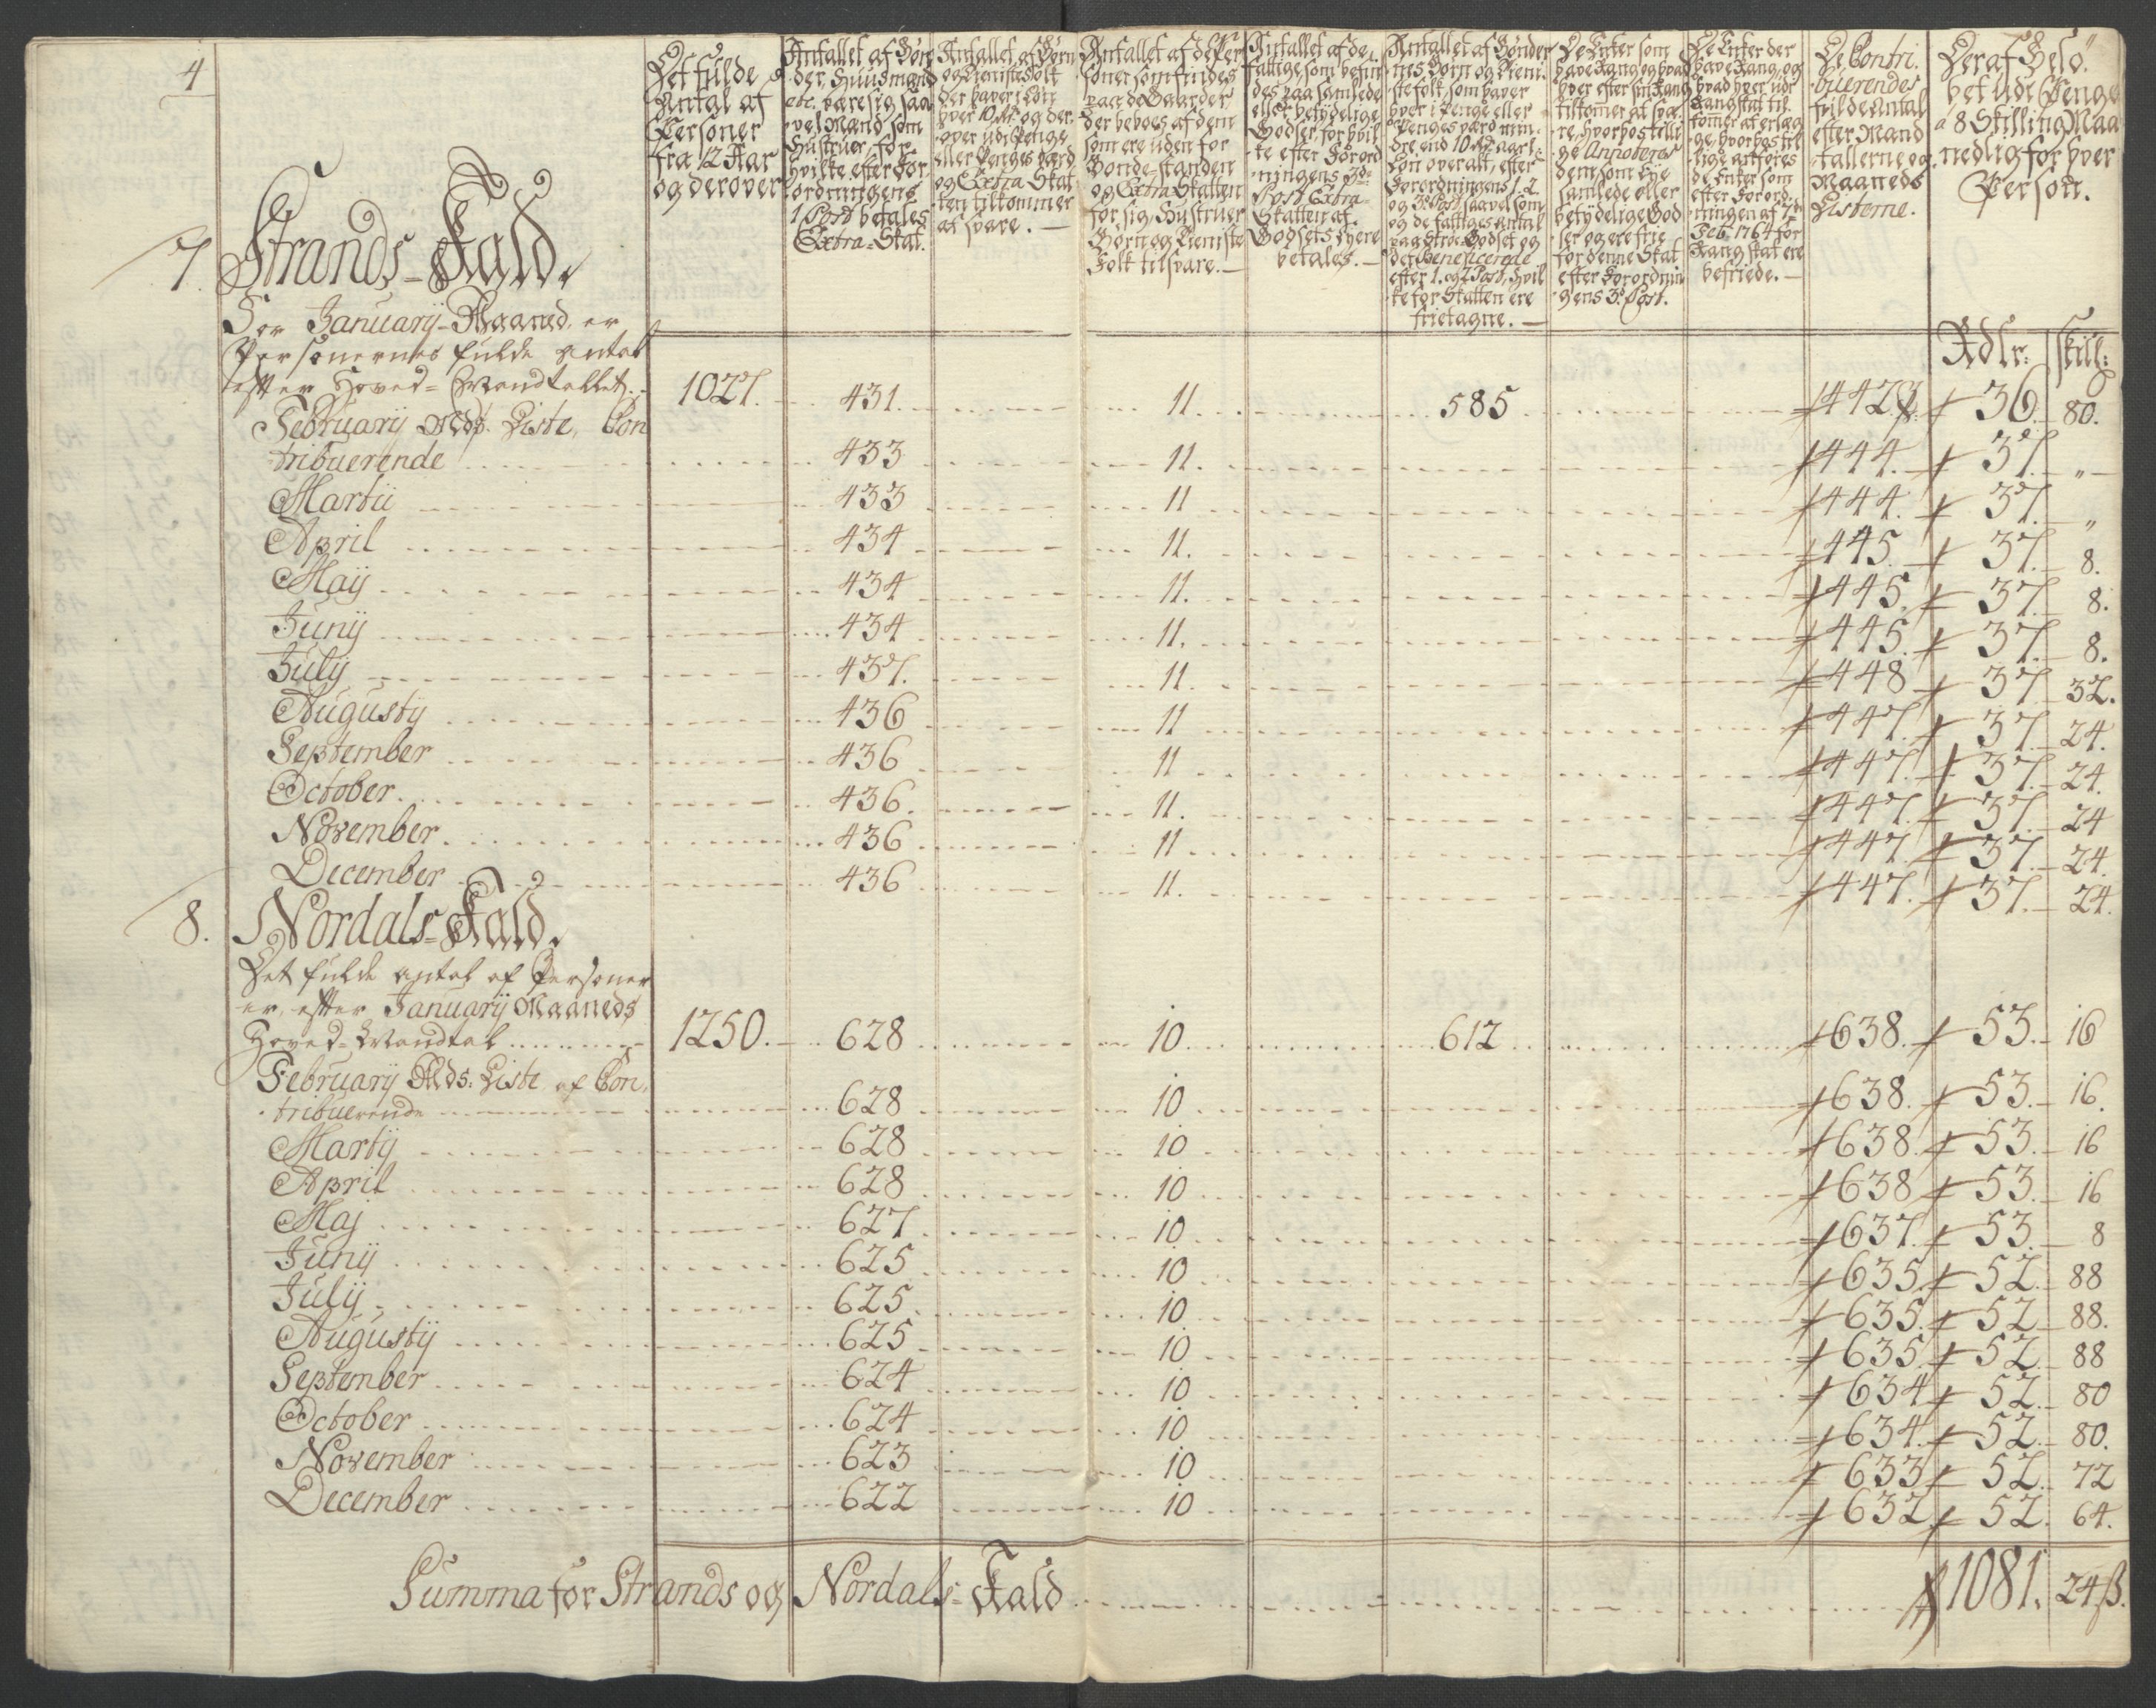 4
Det fulde
Antal af
Personer
fra 12 Aar
og derover
Antallet af Bøn
der, Huusmænd
etc. være sig saa
vel Mænd som
Hustruer, for
hvilke efter For
ordningens
1. Post betales
Extra-Skat.
Antallet af Børn
og Tienistefolk
der haver i Løn
hver 10 Rdr. og der
over udi Penge
eller Penges værd
og Extra Skat
ten tilkommer
at svare. —
Antallet af de Per
soner som findes
paa de Gaarder
der beboes af dem
som ere uden for
Bonde-standen
og Extra Skatten
for sig, Hustruer
Børn og Tieniste
Folk tilsvare. —
Antallet af de
fattige, som befin
des paa samlede
eller betydelige
Godser, for hvil
ke efter Forord
ningens 3de
Post Extra-
Skatten af
Godsets Eyere
betales. —
Antallet af Bønder
nes Børn og Tieni-
stefolk, som haver
hver i Penge eller
Penges værd min
dre end 10 Rdr. aarl:
Løn overalt, efter
Forordningens 1. 2.
og 3. Post, saavel som
og de fattiges antal
paa Strøe-Godset og
det Beneficerede
efter 1. og 2. Post, hvil
ke for Skatten ere
frietagne. —
De Enker som
have Rang og hvad
hver efter sin Rang
tilkommer at sva-
re, hvorhos tilli-
ge Annoteres
dem som Eye
samlede eller
betydelige God
ser og ere frie
for denne Skat
efter Forordnin
gens 3. Post.
De Enker der
have Rang, og
hvad hver udi
Rangskat til
kommer at erlæg
ge, hvorhos til
lige anføres
de Enker som
efter Forord-
ningen af 7de
Feb. 1764 for
Rangskat ere
befriede. —
De Contri-
buerendes
fulde Antal
efter Mand
tallerne og
Maaneds
Listerne.
Deraf Belø-
bet udi Penge
a 8 Skilling Maa
nedlig for hver
Person.
Rdlr: Skill:
7. Strands-Fald.
For January-Maaned, er
Personernes fulde antal
efter Hoved-Mandtallet. 1027. 431. 11. 585 442. 36. 80.
February Mds. Liste, Con
tribuerende 433 11. 444. 37. "
Martii 433 11 444. 37. "
April 434 11. 445. 37. 8.
Maij 434 11. 445. 37. 8.
Junij 434 11. 445. 37. 8.
Julij 437. 11. 448 37 32.
Augustij 436 11 447. 37. 24.
September 436 11 447. 37. 24.
October. 436. 11. 447. 37. 24
November. 436 11 447. 37. 24.
December 436 11. 447. 37. 24.
8. Nordals-Fald.
Det fulde antal af Personer
er, efter Januarij Maaneds
Hoved-Mandtal 1250. 628 10. 612 638. 53. 16
Februarij Mds: Liste af Con-
tribuerende 628 10 638. 53. 16.
Martij 628 10 638. 53. 16
April 628 10 638 53. 16
Maj 627 10 637. 53. 8
Junij 625 10 635 52. 88
Julij 625. 10 635. 52 88.
Augustij 625 10 635 52 88
September 624 10 634 52. 80
October 624 10 634. 52. 80.
November 623 10 633 52. 72
December 622 10 632 52. 64.
Summa for Strands og Nordals-Fald 1081. 24 β.